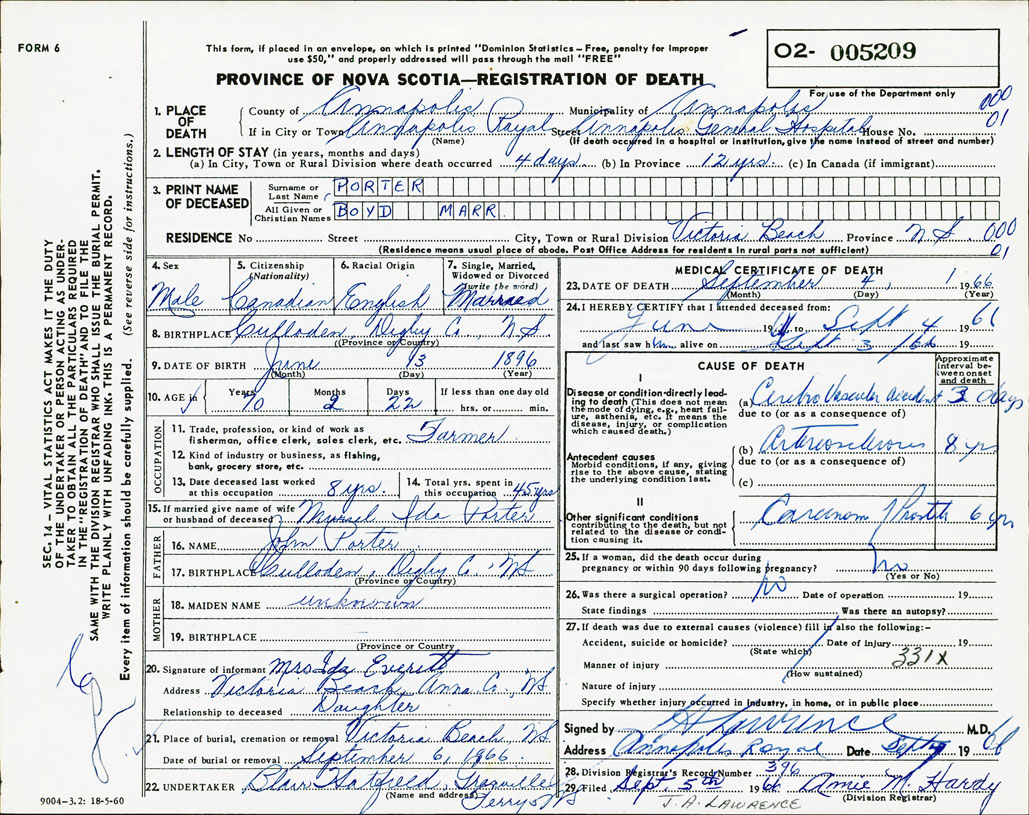 FORM 6
This form, if placed in an envelope, on which is printed "Dominion Statistics – Free, penalty for improper
use $50," and properly addressed will pass through the mail "FREE"
O2- 005209
PROVINCE OF NOVA SCOTIA—REGISTRATION OF DEATH
For use of the Department only
1. PLACE OF DEATH
County of Annapolis Municipality of Annapolis 000
If in City or Town Annapolis Royal Street Annapolis General Hospital House No. 01
(Name) (If death occurred in a hospital or institution, give the name instead of street and number)
2. LENGTH OF STAY (in years, months and days)
(a) In City, Town or Rural Division where death occurred 4 days (b) In Province 12 yrs. (c) In Canada (if immigrant)
3. PRINT NAME OF DECEASED
Surname or Last Name PORTER
All Given or Christian Names BOYD MARR
RESIDENCE No Street City, Town or Rural Division Victoria Beach Province N S. 000
(Residence means usual place of abode. Post Office Address for residents in rural parts not sufficient) 01
4. Sex Male
5. Citizenship (Nationality) Canadian
6. Racial Origin English
7. Single, Married, Widowed or Divorced (write the word) Married
8. BIRTHPLACE Culloden, Digby Co NS
(Province or Country)
9. DATE OF BIRTH June 13 1896
(Month) (Day) (Year)
10. AGE in Years 70 Months 2 Days 22 If less than one day old hrs. or min.
OCCUPATION
11. Trade, profession, or kind of work as
fisherman, office clerk, sales clerk, etc. Farmer
12. Kind of industry or business, as fishing,
bank, grocery store, etc.
13. Date deceased last worked at this occupation 8 yrs.
14. Total yrs. spent in this occupation 45 yrs
15. If married give name of wife or husband of deceased Muriel Ida Porter
FATHER
16. NAME John Porter
17. BIRTHPLACE Culloden, Digby Co, NS
(Province or Country)
MOTHER
18. MAIDEN NAME unknown
19. BIRTHPLACE
(Province or Country
20. Signature of informant Mrs Ida Everett
Address Victoria Beach, Anna. Co., NS
Relationship to deceased Daughter
21. Place of burial, cremation or removal Victoria Beach NS
Date of burial or removal September 6, 1966
22. UNDERTAKER Blair Hatfield, Granville
(Name and address) Ferry, NS
MEDICAL CERTIFICATE OF DEATH
23. DATE OF DEATH September 4, 1966
(Month) (Day) (Year)
24. I HEREBY CERTIFY that I attended deceased from:
June 19 to Sept 4 1966
and last saw him alive on Sept 3/66 19
CAUSE OF DEATH
Approximate interval between onset and death
I
Disease or condition directly leading to death (This does not mean
the mode of dying, e.g., heart failure, asthenia, etc. It means the
disease, injury, or complication which caused death.)
(a) Cerebro Vascular accident 3 days
due to (or as a consequence of)
Antecedent causes
Morbid conditions, if any, giving rise to the above cause, stating
the underlying condition last.
(b) Arteriosclerosis 8 yrs
due to (or as a consequence of)
(c)
II
Other significant conditions
contributing to the death, but not related to the disease or condition causing it.
Carcinoma Prostate 6 yrs
25. If a woman, did the death occur during
pregnancy or within 90 days following pregnancy? no
(Yes or No)
26. Was there a surgical operation? no Date of operation 19
State findings Was there an autopsy?
27. If death was due to external causes (violence) fill in also the following:–
Accident, suicide or homicide? Date of injury 19
(State which) 331X
Manner of injury
(How sustained)
Nature of injury
Specify whether injury occurred in industry, in home, or in public place
Signed by Lawrence M.D.
Address Annapolis Royal Date Sept 1966
28. Division Registrar's Record Number 396
29. Filed Sept. 5th 1966 Amie M. Hardy
(Division Registrar)
J. A. LAWRENCE
9004–3.2: 18-5-60
SEC. 14 – VITAL STATISTICS ACT MAKES IT THE DUTY
OF THE UNDERTAKER OR PERSON ACTING AS UNDER-
TAKER TO OBTAIN ALL THE PARTICULARS REQUIRED
IN THE "REGISTRATION OF DEATH" AND TO FILE THE
SAME WITH THE DIVISION REGISTRAR WHO SHALL ISSUE THE BURIAL PERMIT.
WRITE PLAINLY WITH UNFADING INK. THIS IS A PERMANENT RECORD.
Every item of information should be carefully supplied. (See reverse side for instructions.)